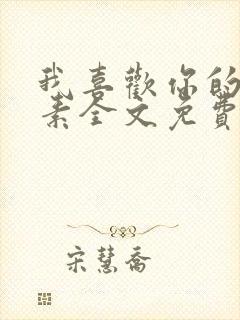 我喜歡你的
素全文免費
宋慧喬